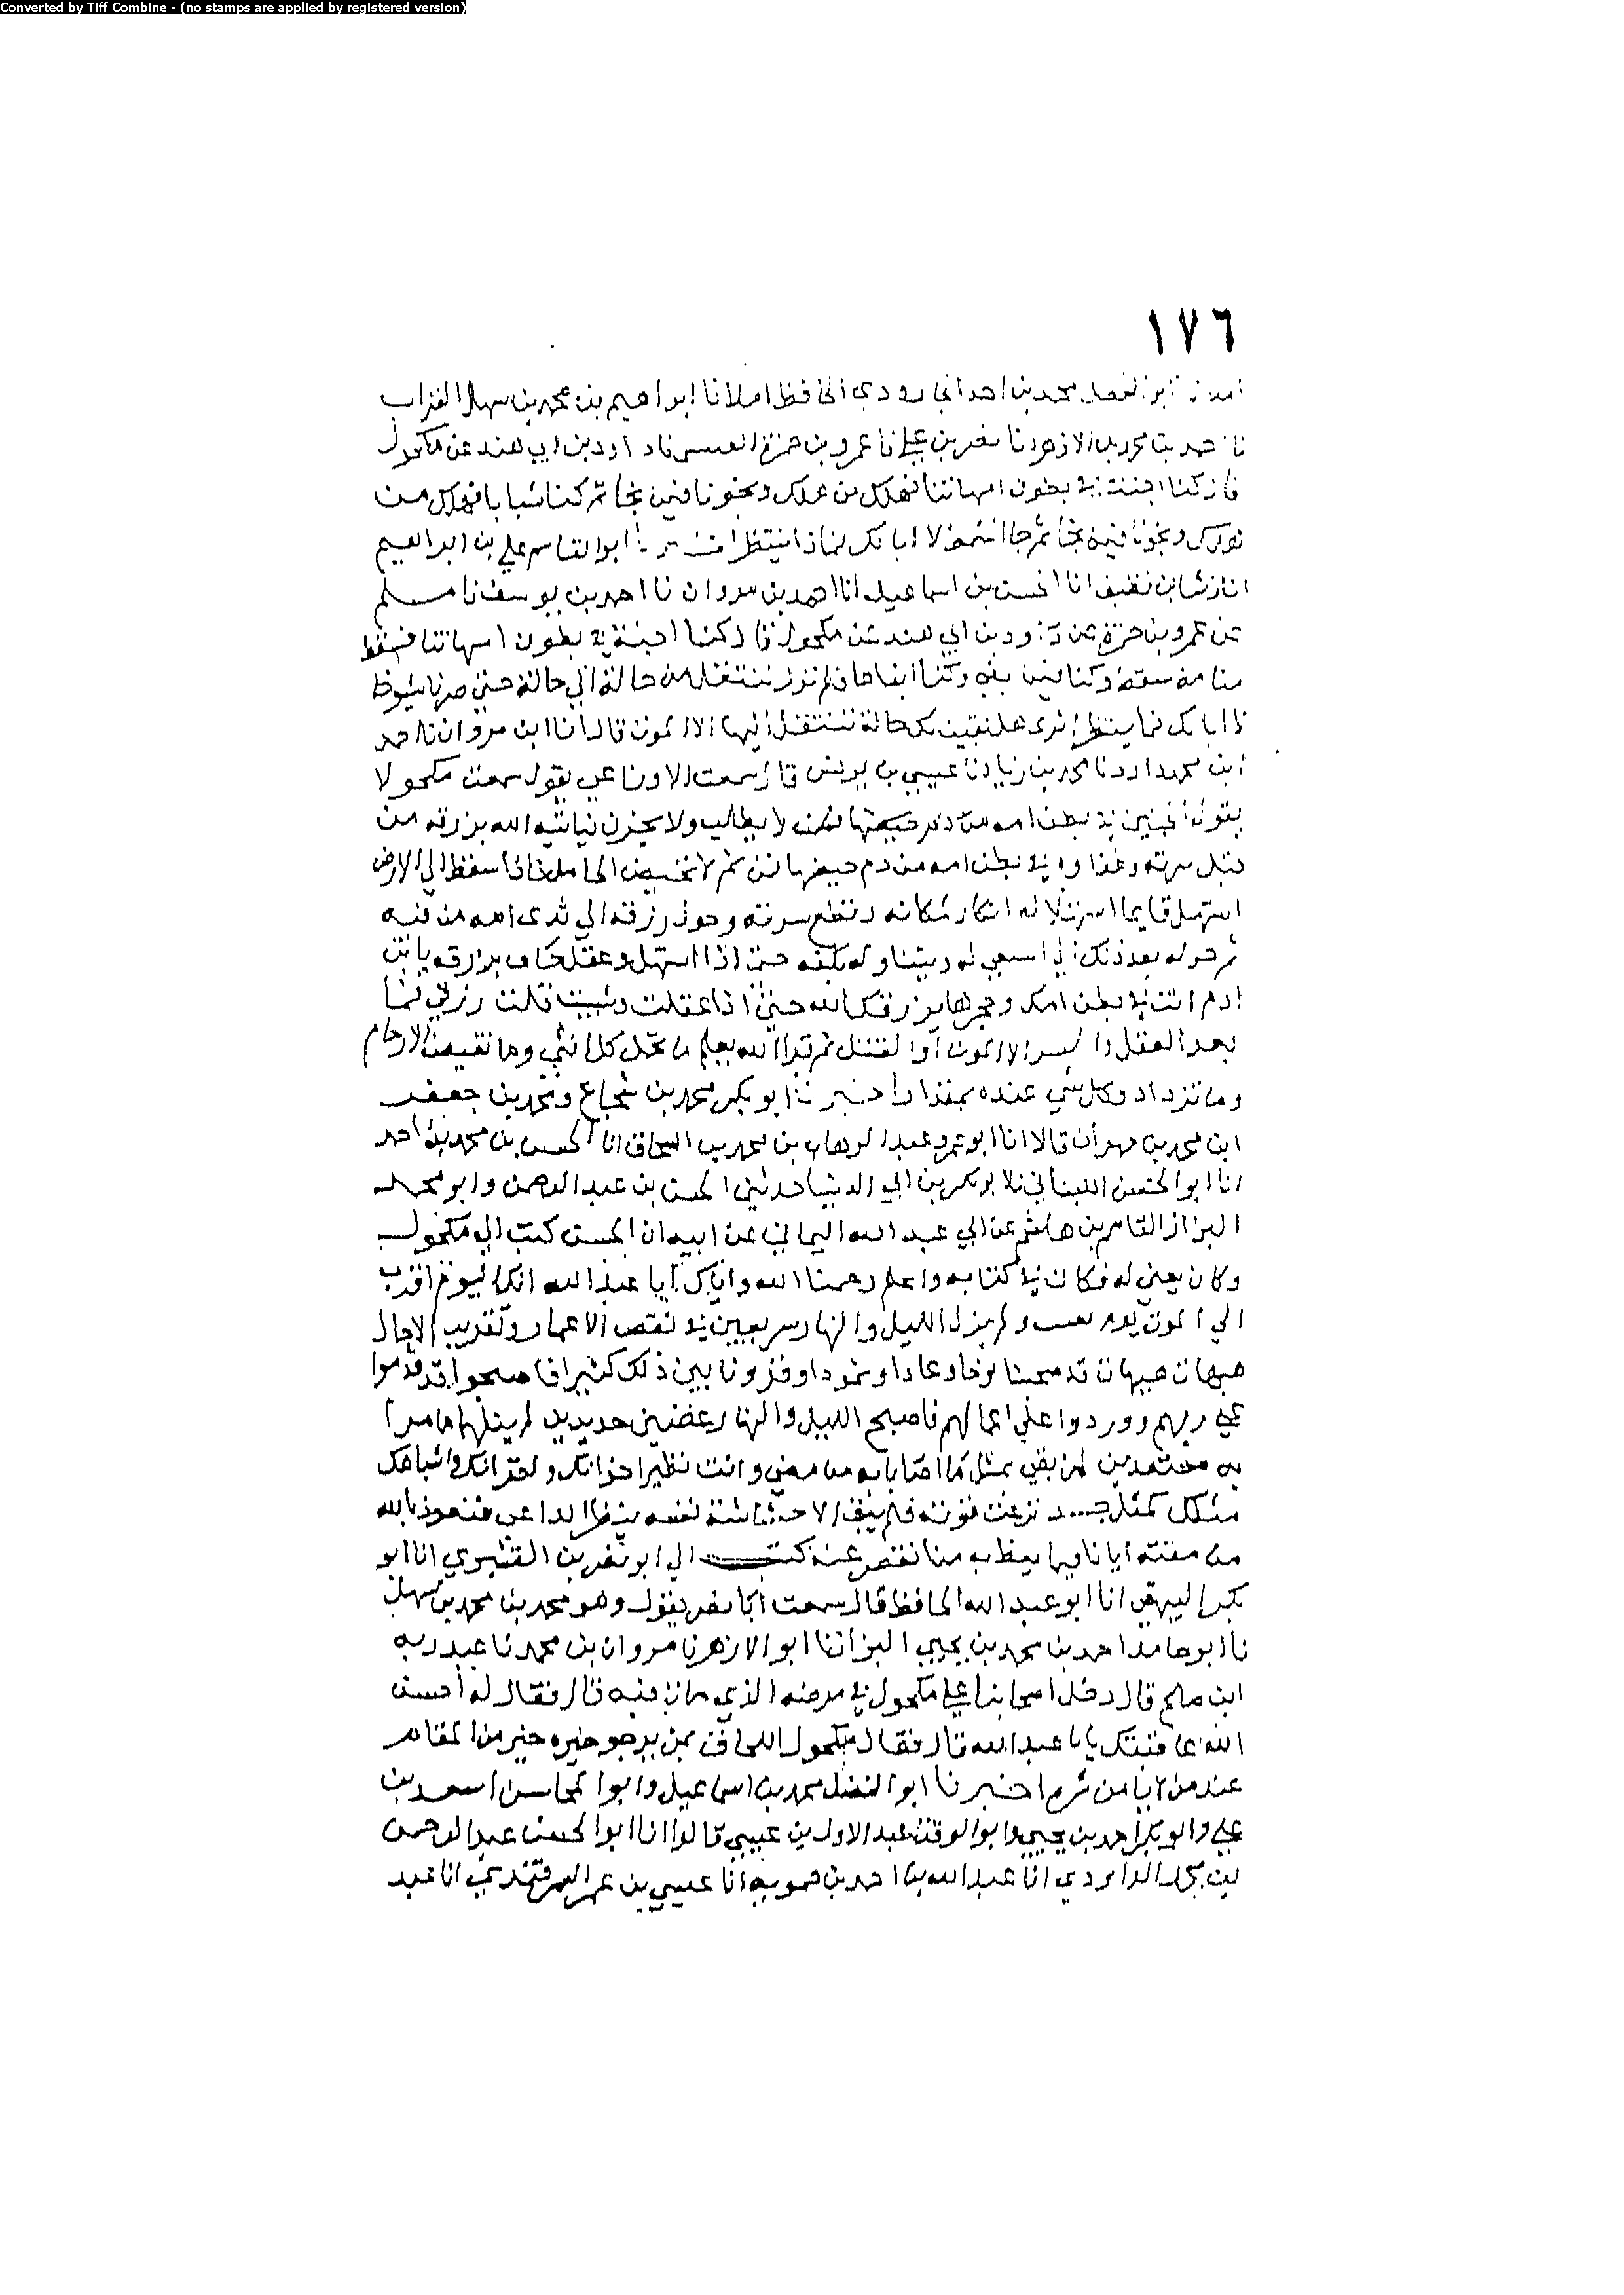 Converted by Tiff Combine - (no stamps are applied by registered version)
١٧٦
محمد بن احمد الجارودي الحافظ املانا ابراهيم بن محمد بن سهل القراب
نا محمد بن الازهر نا نصر بن علي نا عمرو بن حمزة القيسي نا داود بن ابي هند عن مكحول
قال كنا اجنة في بطون امهاتنا فهلك من هلك ونجونا فيمن نجا ثم كنا شبابا فهلك من
هلك ونجونا فيمن نجا ثم جا الشمط لا ابا لك فماذا ننتظر ابو القاسم علي بن ابراهيم
انا رشا بن نظيف انا الحسن بن اسماعيل انا احمد بن مروان نا احمد بن يوسف نا مسلم
عن عمرو بن حمزة عن داود بن ابي هند عن مكحول قال كنا اجنة في بطون امهاتنا فسقط
منا من سقط وكنا فيمن بقي وكنا ايفاعا فلم نزل ننتقل من حالة الي حالة حتي صرنا شيوخا
لا ابا لك فما ينتظر تري هل بقيت لك حالة تنتقل اليها الا الموت قال انا ابن مروان نا احمد
ابن نا محمد بن زياد نا عيسي بن يونس قال سمعت الاوزاعي يقول سمعت مكحولا
يقول الجنين في بطن امه لا يطلب ولا يحزن فياتيه الله برزقه من
قبل سرته وغذاوه في بطن امه من دم حيضها فمن ثم لا تحيض الحامل فاذا سقط الي الارض
استهل قايما استهلاله انكار مكانه وقطع سرته وحول رزقه الي ثدي امه من فيه
ثم حوله بعد ذلك الي يسعي له ويتناوله بكفه حتي اذا اشتد وعقل خاف برزقه يا بن
ادم انت في بطن امك وحجرها يرزقك الله حتي اذا عقلت وشبيت قلت رزقي فما
بعد العقل الا الموت او القتل ثم قرا الله يعلم ما تحمل كل انثي وما تغيض الارحام
وما تزداد وكل شي عنده بمقدار اخبرنا ابو بكر محمد بن شجاع ومحمد بن جعفر
ابن محمد بن مهران قالا انا ابو عمرو عبد الوهاب بن محمد بن اسحاق انا الحسن بن محمد بن احمد
انا ابو الحسن اللبناني نا ابو بكر بن ابي الدنيا حدثني الحسن بن عبد الرحمن وابو محمد
البزاز القاسم بن هاشم عن ابي عبد الله اليماني عن ابيه ان الحسن كتب الي مكحول
وكان يعني له فكان في كتابه واعلم رحمنا الله واياك ابا عبد الله انك اليوم اقرب
الي الموت يوم ولم يزل الليل والنهار سريعين في نقص الاعمار وتقريب الاجال
هيهات هيهات قد صحبنا نوحا وعادا وثمودا وقرونا بين ذلك كثيرا فاصبحوا قد قدموا
علي ربهم ووردوا علي اعمالهم فاصبح الليل والنهار غضين جديدين لم يبلهما ما مرا
به مستعدين لمن بقي بمثل ما اصابا به من مضي وانت نظير اخوانك واقرانك واشباهك
مثلك كمثل نزعت قوته فلم يبق الا حشاشة نفسه ينتظر الداعي فنعوذ بالله
من مقته ايانا فيما يعظ به مما نقصر عنه كتب الي ابو نصر بن القشيري انا ابو
بكر البيهقي انا ابو عبد الله الحافظ قال سمعت ابا نصر يقول وهو محمد بن محمد بن سهل
نا ابو حامد احمد بن محمد بن يحيي البزاز نا ابو الازهر نا مروان بن محمد نا عبد ربه
ابن صالح قال دخل اصحابنا علي مكحول في مرضه الذي مات فيه قال فقال له احسن
الله عافيتك يا ابا عبد الله قال فقال مكحول اللحاق بمن يرجو خيره خير من المقام
عند من لا يامن شره اخبرنا ابو الفضل محمد بن اسماعيل وابو المحاسن اسعد بن
علي وابو بكر احمد بن يحيي وابو الوقت عبد الاول بن عيسي قالوا انا ابو الحسن عبد الرحمن
بن محمد الداودي انا عبد الله بن احمد بن حمويه انا عيسي بن عمر السمرقندي انا عبد